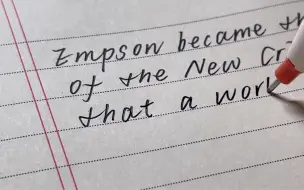 Empson became th
of the New Cr
that a work